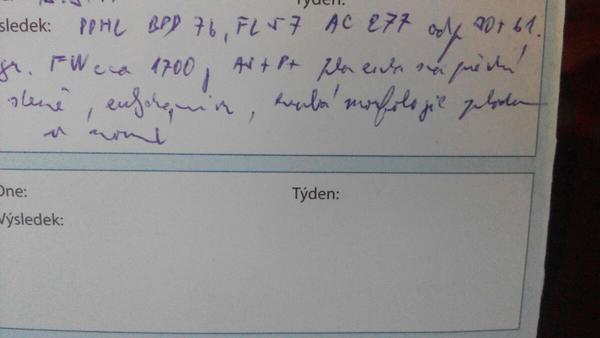 Týden:
sledek: PPHL BPD 76, FL 57 AC 277 odp 30+61.
gr. FW cca 1700g, As+P+ placenta na přední
stěně, hrubá morfologie plodu
v normě
Dne: Týden:
Výsledek: